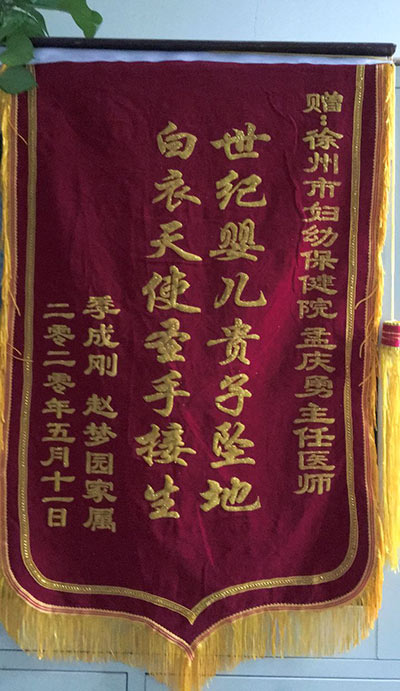 赠：徐州市妇幼保健院孟庆勇主任医师
世纪婴儿贵子坠地
白衣天使圣手接生
季成刚 赵梦园家属
二零二零年五月十一日